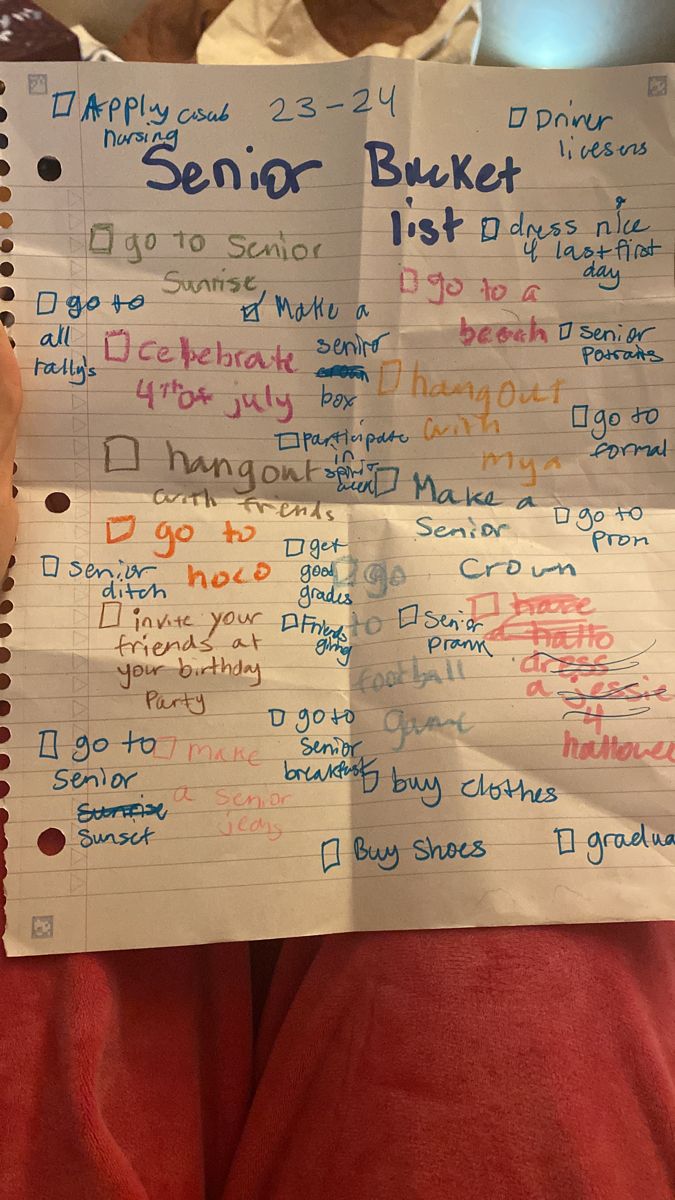 Apply csub
nursing
23-24
Driver
livesens
Senior Bucket
list
dress nice
4 last first
day
go to Senior
Sunrise
go to a
beach
go to
all
rally's
Make a
senior
box
senior
Potraits
celebrate
4th of july
hangout
with
mya
go to
formal
participate
in
spirit
week
hangout
with friends
Make a
Senior
Crown
go to
Prom
go to
hoco
senior
ditch
get
good
grades
go
to
football
game
Senior
prank
have
a hallo
dress
a jessie
4
hallowee
invite your
friends at
your birthday
Party
Friends
giving
go to
Senior
Sunrise
Sunset
make
a senior
jeans
go to
senior
breakfast
buy clothes
Buy Shoes
gradua